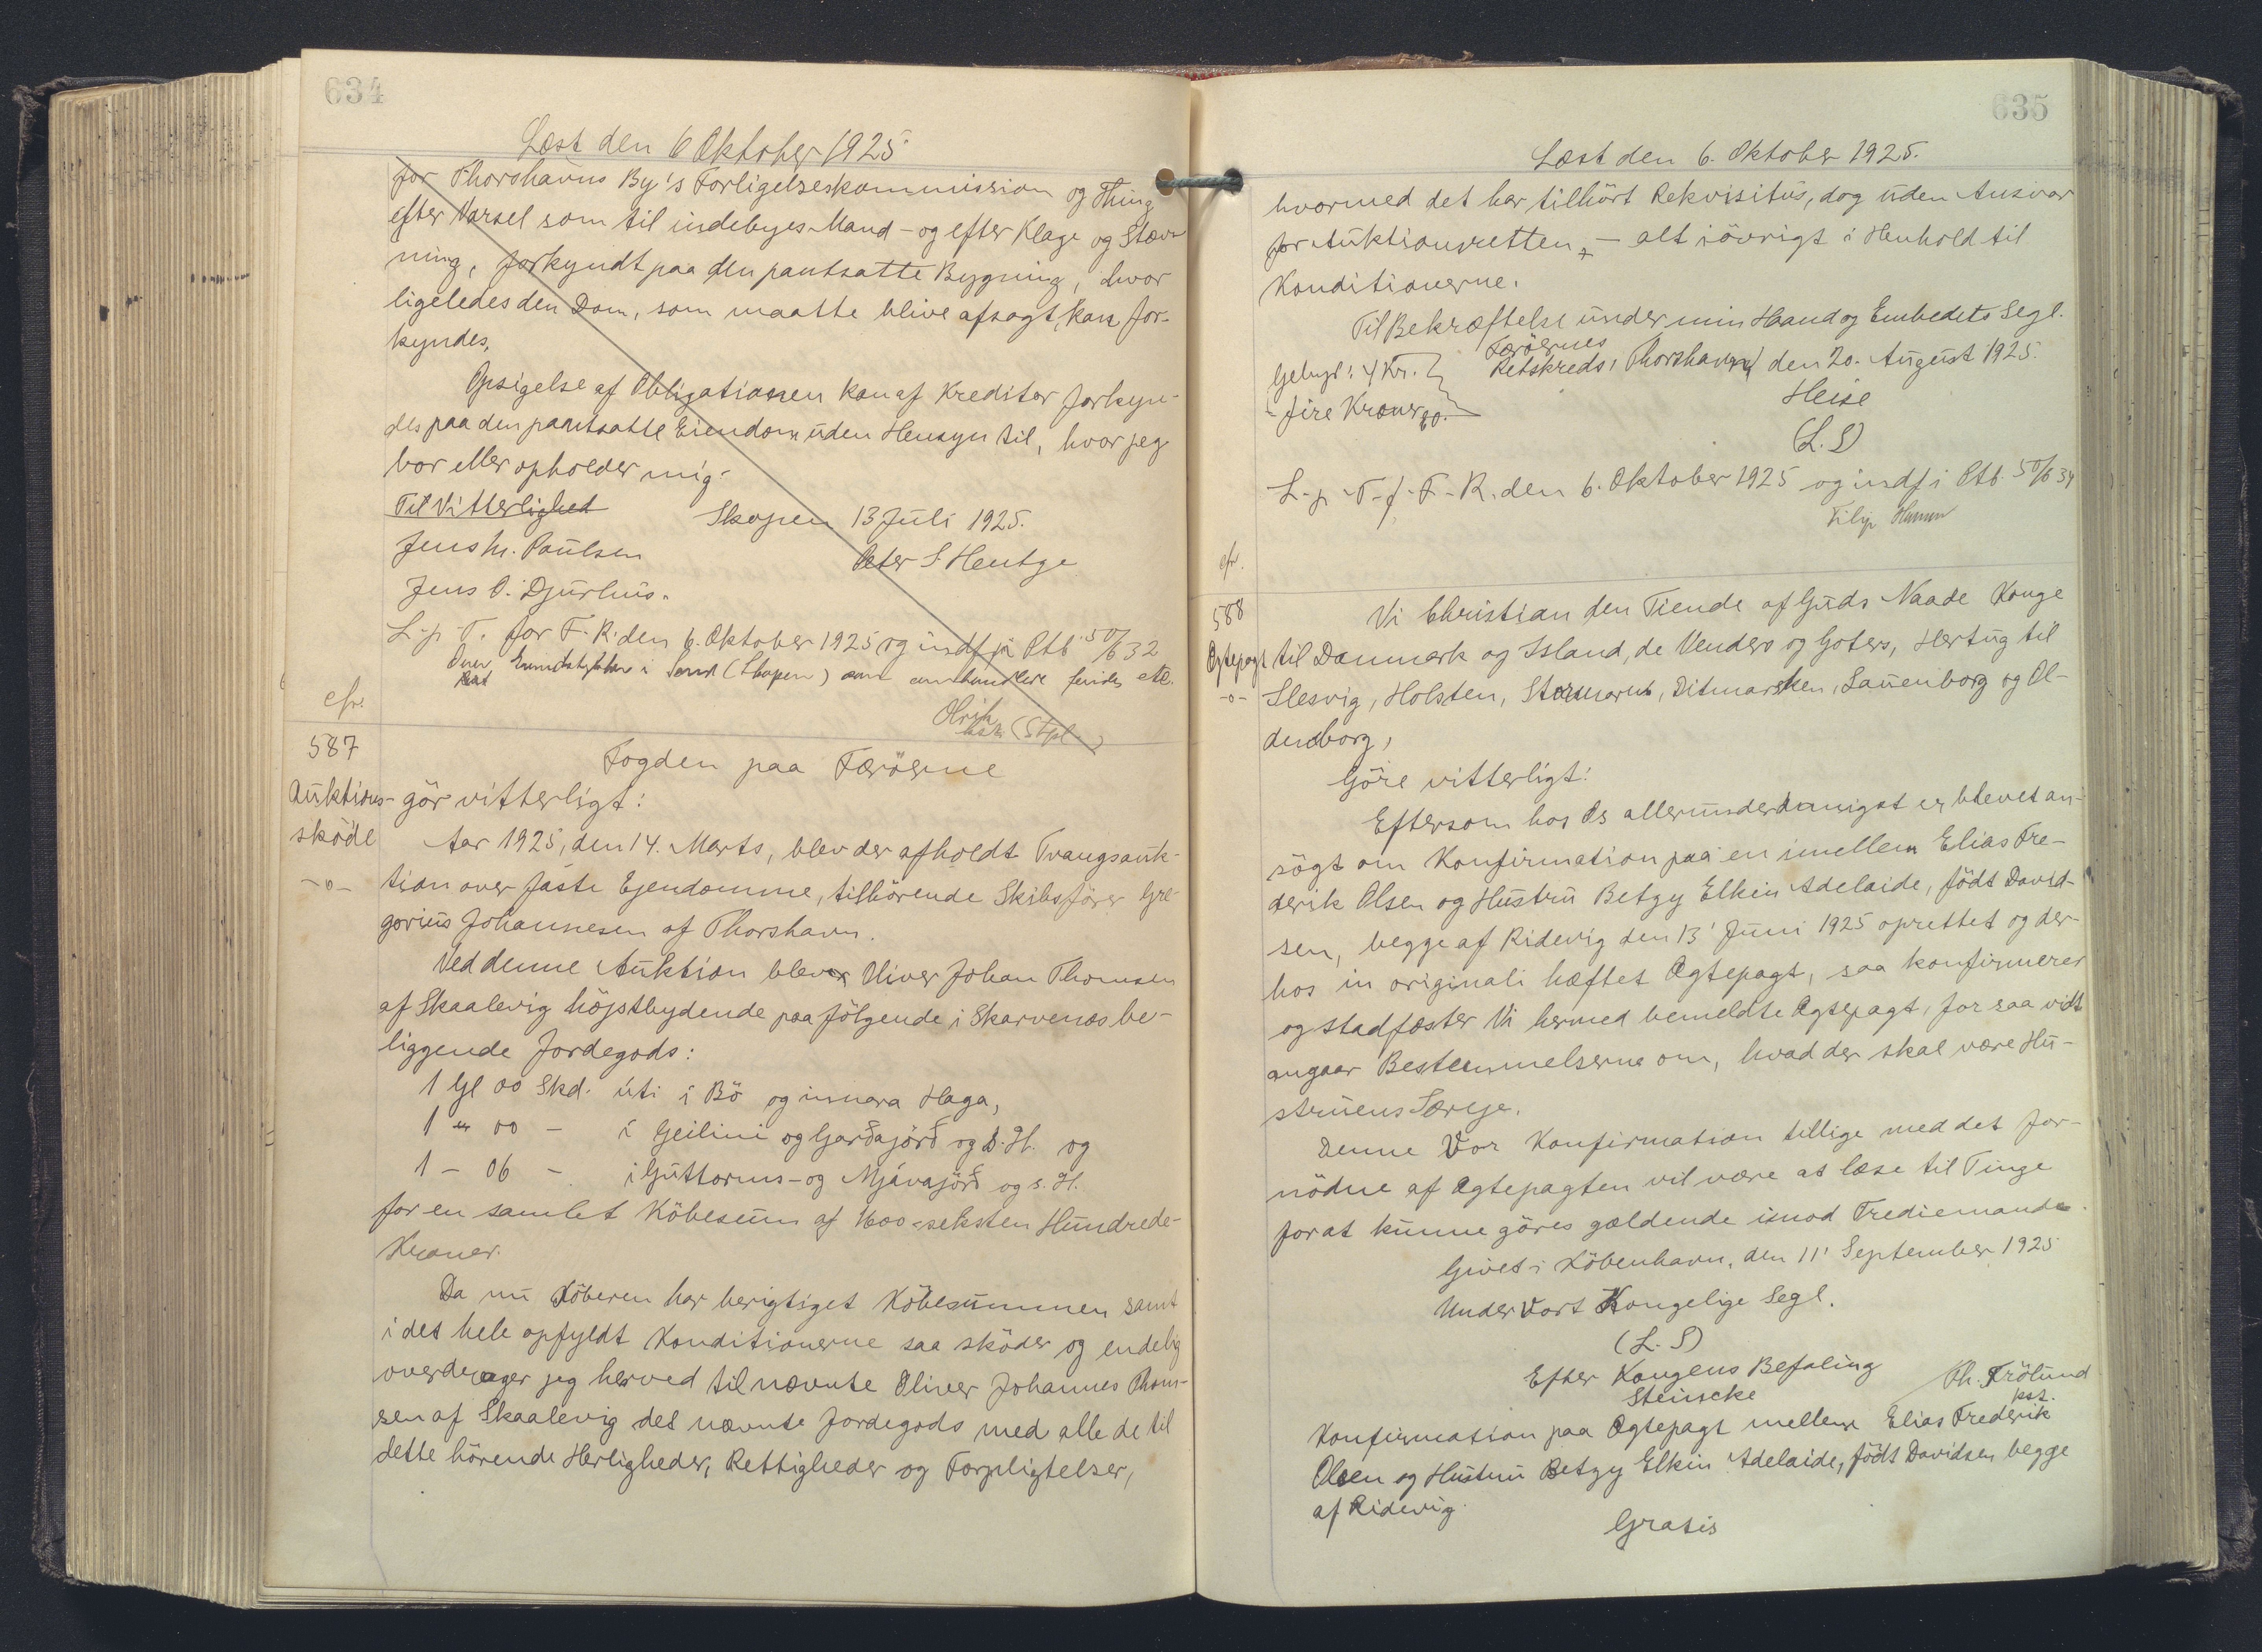 634
Læst den 6 Oktober 1925
for Thorshavns By's Forligelseskommission og Thing
efter Varsel som til indebyes Mand - og efter Klage og Stæv-
ning, forkyndt paa den pantsatte Bygning, hvor
ligeledes den Dom, som maatte blive afsagt, kan for-
kyndes,
Opsigelse af Obligationen kan af Kreditor forkyn-
des paa den pantsatte Eiendom uden Hensyn til, hvor jeg
bor eller opholder mig.
Til Vitterlighed
Skopen 13 Juli 1925.
Jens M. Paulsen
Peter S Hentze
Jens O. Djurhus.
L. p. T. for F. R. den 6. Oktober 1925 og indf. i Ptb 50/632
(Skopen) etc.
cfr.
587
Fogden paa Færöerne
Auktions-
sköde
-o-
gör vitterligt:
Aar 1925, den 14. Marts, blev der afholdt Tvangsauk-
tion over faste Ejendomme, tilhörende Skibsförer Gre-
gorius Johannesen af Thorshavn.
Ved denne Auktion blev Oliver Johan Thomsen
af Skaalevig höjstbydende paa fölgende i Skarvenæs be-
liggende Jordegods:
1 Gl 00 Skd. úti i Bö og innara Haga,
1 " 00 - í Geilini og Garðajörð og s. H. og
1 - 06 - í Guttorms- og Mjávajörð og s. H.
for en samlet Köbesum af 1600 - seksten Hundrede-
Kroner.
Da nu Köberen har berigtiget Köbesummen samt
i det hele opfyldt Konditionerne saa sköder og endelig
overdrager jeg herved til nævnte Oliver Johannes Thom-
sen af Skaalevig det nævnte Jordegods med alle de til
dette hörende Herligheder, Rettigheder og Forpligtelser,
635
Læst den 6. Oktober 1925.
hvormed det har tilhört Rekvisitus, dog uden Ansvar
for Auktionsretten, - alt iövrigt i Henhold til
Konditionerne.
Til Bekræftelse under min Haand og Embedets Segl.
Færöernes
Retskreds, Thorshavn, den 20. August 1925.
Gebyr: 4 Kr.
- fire Kroner
Heise
(L. S)
L. p. T. f. F. R. den 6. Oktober 1925 og indf i Ptb. 50/634
cfr.
588
Ægtepagt
-o-
Vi Christian den Tiende af Guds Naade Konge
til Danmark og Island, de Venders og Goters, Hertug til
Slesvig, Holsten, Stormarn, Ditmarsken, Lauenborg og Ol-
denborg,
Göre vitterligt:
Eftersom hos Os allerunderdanigst er blevet an-
sögt om Konfirmation paa en imellem Elias Fre-
derik Olsen og Hustru Betzy Elkin Adelaide, födt David-
sen, begge af Ridevig den 13' Juni 1925 oprettet og der-
hos in originali hæftet Ægtepagt, saa konfirmerer
og stadfæster Vi hermed bemeldte Ægtepagt, for saa vidt
angaar Bestemmelserne om, hvad der skal være Hu-
struens Særeje.
Denne Vor Konfirmation tillige med det for-
nödne af Ægtepagten vil være at læse til Tinge
for at kunne göres gældende imod Trediemand.
Givet i Köbenhavn, den 11' September 1925
Under Vort Kongelige Segl.
(L. S)
Efter Kongens Befaling
Steincke
Th. Frölund
kst.
Konfirmation paa Ægtepagt mellem Elias Frederik
Olsen og Hustru Betzy Elkin Adelaide, födt Davidsen, begge
af Ridevig.
Gratis